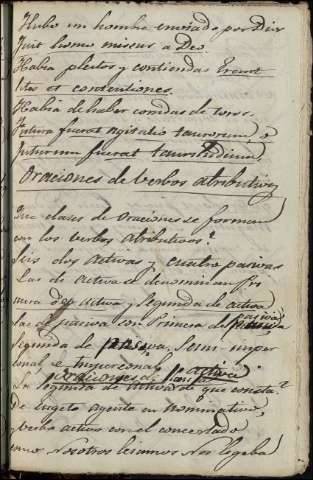 Hubo un hombre enviado por Dios
Fuit homo missus a Deo.
Habia pleitos y contiendas Erant
lites et contentiones.
Habia de haber corridas de toros.
Futura fuerat agitatio taurorum o
futurum fuerat
Oraciones de verbos atributivos
Que clases de oraciones se forman
con los verbos atributivos?
Seis dos activas y cuatro pasivas
Las de activa se denominan Pri
mera de activa y Segunda de activa
Las de pasiva son Primera de pasiva
Segunda de pasiva, Semi-imper
sonal e impersonal
La segunda de activa de que consta?
De sugeto agente en nominativo
verbo activo con el concertado
como Nosotros leiamos Nos legeba